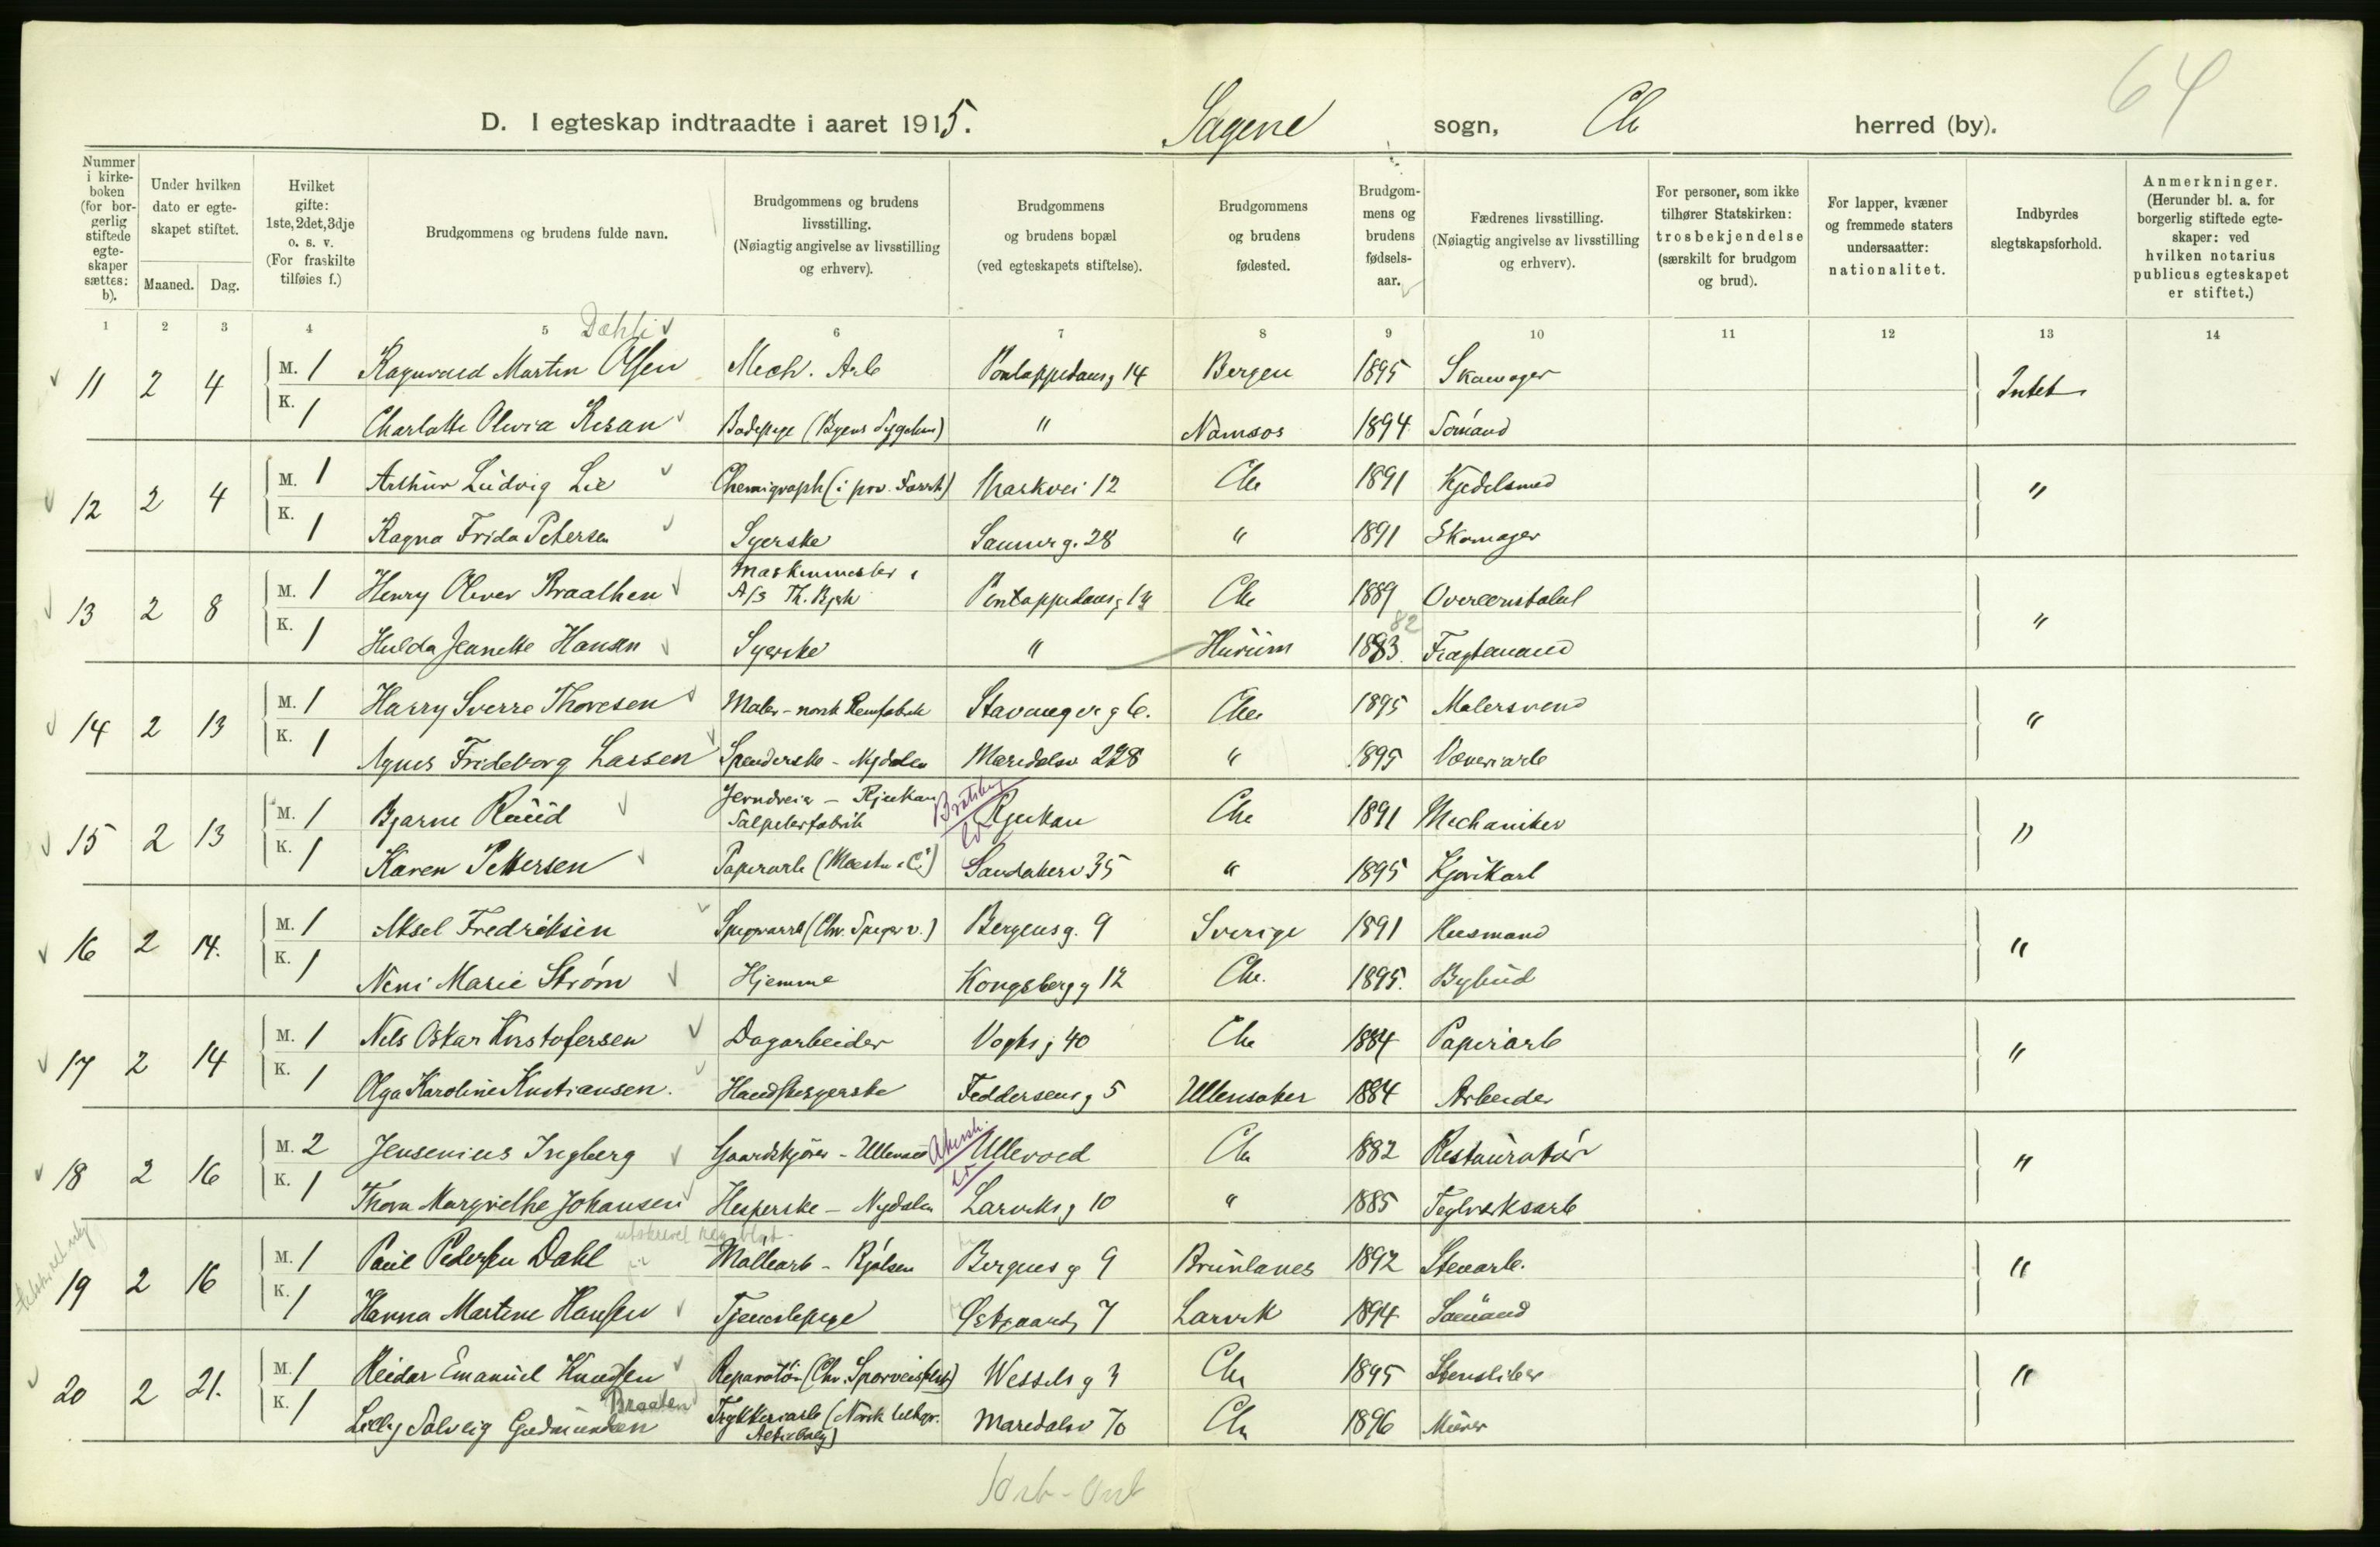 64
D. I egteskap indtraadte i aaret 1915. Sagene sogn, Chr herred (by).
Nummer i kirke-boken (for bor-gerlig stiftede egte-skaper sættes: b).
Under hvilken dato er egte-skapet stiftet.
Maaned. Dag.
Hvilket gifte: 1ste, 2det, 3dje o. s. v. (For fraskilte tilføies f.)
Brudgommens og brudens fulde navn.
Brudgommens og brudens livsstilling. (Nøiagtig angivelse av livsstilling og erhverv).
Brudgommens og brudens bopæl (ved egteskapets stiftelse).
Brudgommens og brudens fødested.
Brudgom-mens og brudens fødsels-aar.
Fædrenes livsstilling. (Nøiagtig angivelse av livsstilling og erhverv).
For personer, som ikke tilhører Statskirken: trosbekjendelse (særskilt for brudgom og brud).
For lapper, kvæner og fremmede staters undersaatter: nationalitet.
Indbyrdes slegtskapsforhold.
Anmerkninger. (Herunder bl. a. for borgerlig stiftede egte-skaper: ved hvilken notarius publicus egteskapet er stiftet.)
1 2 3 4 5 6 7 8 9 10 11 12 13 14
Dæhli
11 2 4 M. 1 Ragnvald Martin Olsen Mech. Arb Bergen 1895 Skomager Intet
K. 1 Charlotte Olivia Resan Badepige " Namsos 1894 Sømand
12 2 4 M. 1 Arthur Ludvig Lie Chemigraph (i priv. Forreth) Markvei 12 Chr 1891 Kjedelsmed "
K. 1 Ragna Frida Petersen Syerske Sannerg. 28 " 1891 Skomager
Maskinmester i
13 2 8 M. 1 Henry Oliver Braathen A/S Th. Bjerk Chr 1889 Overconstabel "
82
K. 1 Hulda Jeanette Hansen Syerske " Hurum 1883. Fragtemand
14 2 13 M. 1 Harry Sverre Thoresen Maler - norsk Remfabrik Stavanger g 6. Chr 1895 Malersvend "
K. 1 Agnes Frideborg Larsen Spinderske - Nydalen Maridalsv 228 " 1895 Væveriarb
Jerndreier - Rjukan Bratsberg
15 2 13 M. 1 Bjarne Ruud Salpeterfabrik Rjukan Chr 1891 Mechaniker "
K. 1 Karen Pettersen Papirarb Sandakerv 35 " 1895 Kjørekarl
16 2 14. M. 1 Aksel Fredriksen Spigerarb (Chr. Spigerv.) Bergensg. 9 Sverige 1891 Husmand "
K. 1 Neni Marie Strøm Hjemme Kongsbergg 12 Chr. 1895. Bybud
17 2 14 M. 1 Nils Oskar Kristofersen Dagarbeider Vogtsg 40 Chr 1884 Papirarb "
K. 1 Olga Karoline Kristiansen. Handskesyerske Feddersensg 5 Ullensaker 1884 Arbeider
Akersh.
18 2 16 M. 2 Jensenius Ingberg Gaardskjører - Ullevold Ullevold Chr 1882 Restauratør "
K. 1 Thora Margrethe Johansen Hesperske - Nydalen Larviksg 10 " 1885 Teglverksarb
utskrevet
19 2 16 M. 1 Paul Pedersen Dahl Møllearb - Bjølsen Bergens g 9 Brunlanes 1892 Stenarb. "
K. 1 Hanna Martine Hansen Tjenestepige Østgaardsg 7 Larvik 1894 Sømand
20 2 21. M. 1 Reidar Emanuel Knudsen Reparatør (Chr. Sporveisselsk) Wessels g 3 Chr 1895 Stensliber "
Braaten
K. 1 Lilly Solveig Gudmundsen Trykkeriarb (Norsk lithogr. Maridalsv 70 Chr 1896 Murer
Actiebolag)